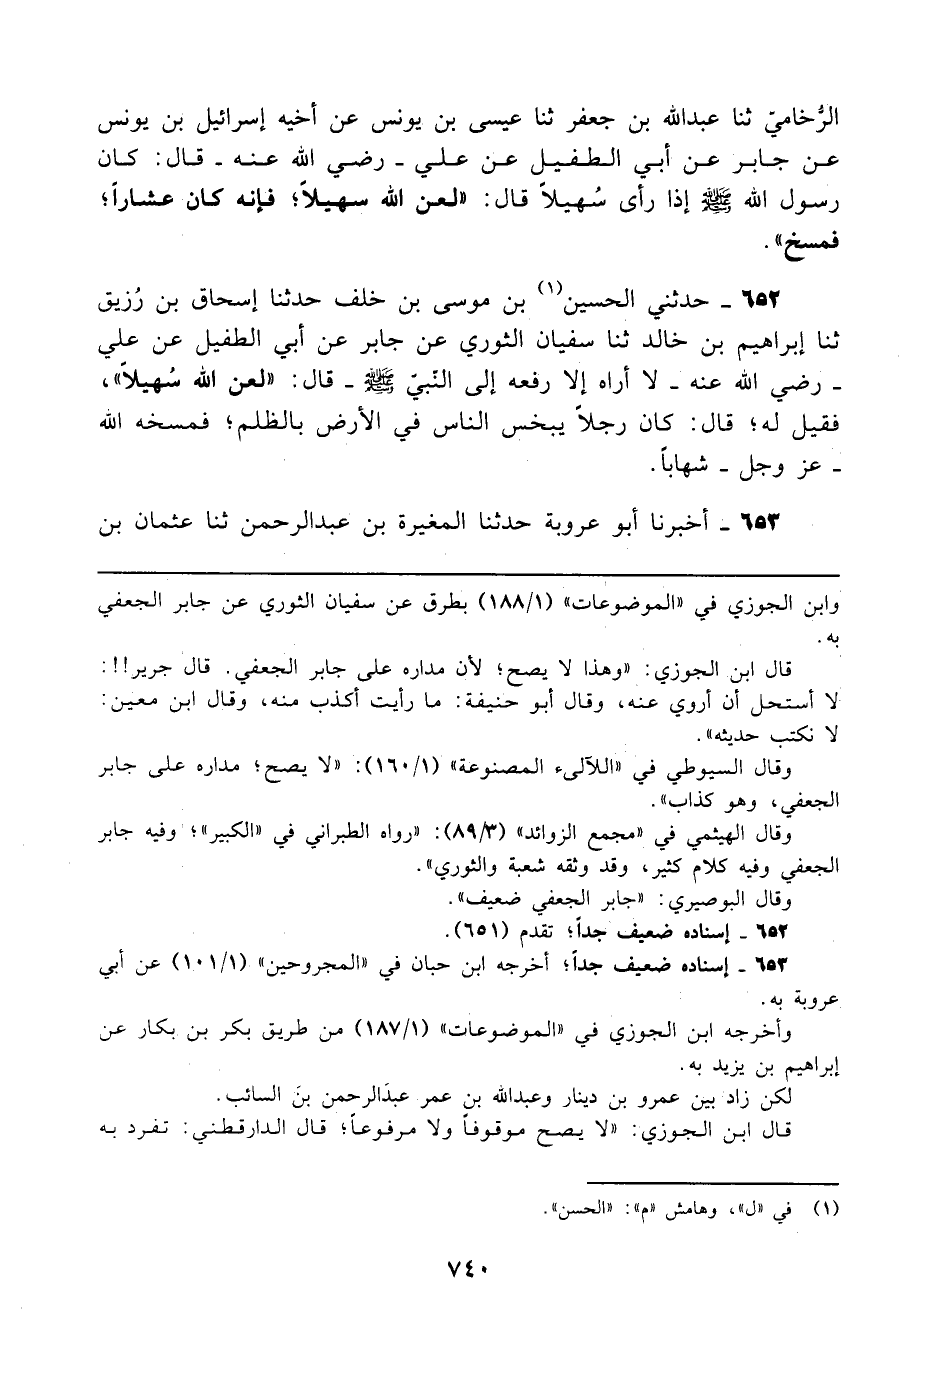 الرُّخاميّ ثنا عبدالله بن جعفر ثنا عيسى بن يونس عن أخيه إسرائيل بن يونس
عن جابر عن أبي الطفيل عن علي ـ رضي الله عنه ـ قال: كان
رسول الله ﷺ إذا رأى سُهيلاً قال: «لعن الله سهيلاً؛ فإنه كان عشاراً؛
فمسخ».
٦٥٢ ـ حدثني الحسين(١) بن موسى بن خلف حدثنا إسحاق بن رُزيق
ثنا إبراهيم بن خالد ثنا سفيان الثوري عن جابر عن أبي الطفيل عن علي
ـ رضي الله عنه ـ لا أراه إلا رفعه إلى النّبيّ ﷺ ـ قال: «لعن الله سُهيلاً»،
فقيل له؛ قال: كان رجلاً يبخس الناس في الأرض بالظلم؛ فمسخه الله
ـ عز وجل ـ شهاباً.
٦٥٣ ـ أخبرنا أبو عروبة حدثنا المغيرة بن عبدالرحمن ثنا عثمان بن
وابن الجوزي في «الموضوعات» (١٨٨/١) بطرق عن سفيان الثوري عن جابر الجعفي
به.
قال ابن الجوزي: «وهذا لا يصح؛ لأن مداره على جابر الجعفي. قال جرير!!:
لا أستحل أن أروي عنه، وقال أبو حنيفة: ما رأيت أكذب منه، وقال ابن معين:
لا نكتب حديثه».
وقال السيوطي في «اللآلىء المصنوعة» (١٦٠/١): «لا يصح؛ مداره على جابر
الجعفي، وهو كذاب».
وقال الهيثمي في «مجمع الزوائد» (٨٩/٣): «رواه الطبراني في «الكبير»؛ وفيه جابر
الجعفي وفيه كلام كثير، وقد وثقه شعبة والثوري».
وقال البوصيري: «جابر الجعفي ضعيف».
٦٥٢ ـ إسناده ضعيف جداً؛ تقدم (٦٥١).
٦٥٣ ـ إسناده ضعيف جداً؛ أخرجه ابن حبان في «المجروحين» (١٠١/١) عن أبي
عروبة به.
وأخرجه ابن الجوزي في «الموضوعات» (١٨٧/١) من طريق بكر بن بكار عن
إبراهيم بن يزيد به.
لكن زاد بين عمرو بن دينار وعبدالله بن عمر عبدَالرحمن بنَ السائب.
قال ابن الجوزي: «لا يصح موقوفاً ولا مرفوعاً؛ قال الدارقطني: تفرد به
(١) في «ل»، وهامش «م»: «الحسن».
٧٤٠